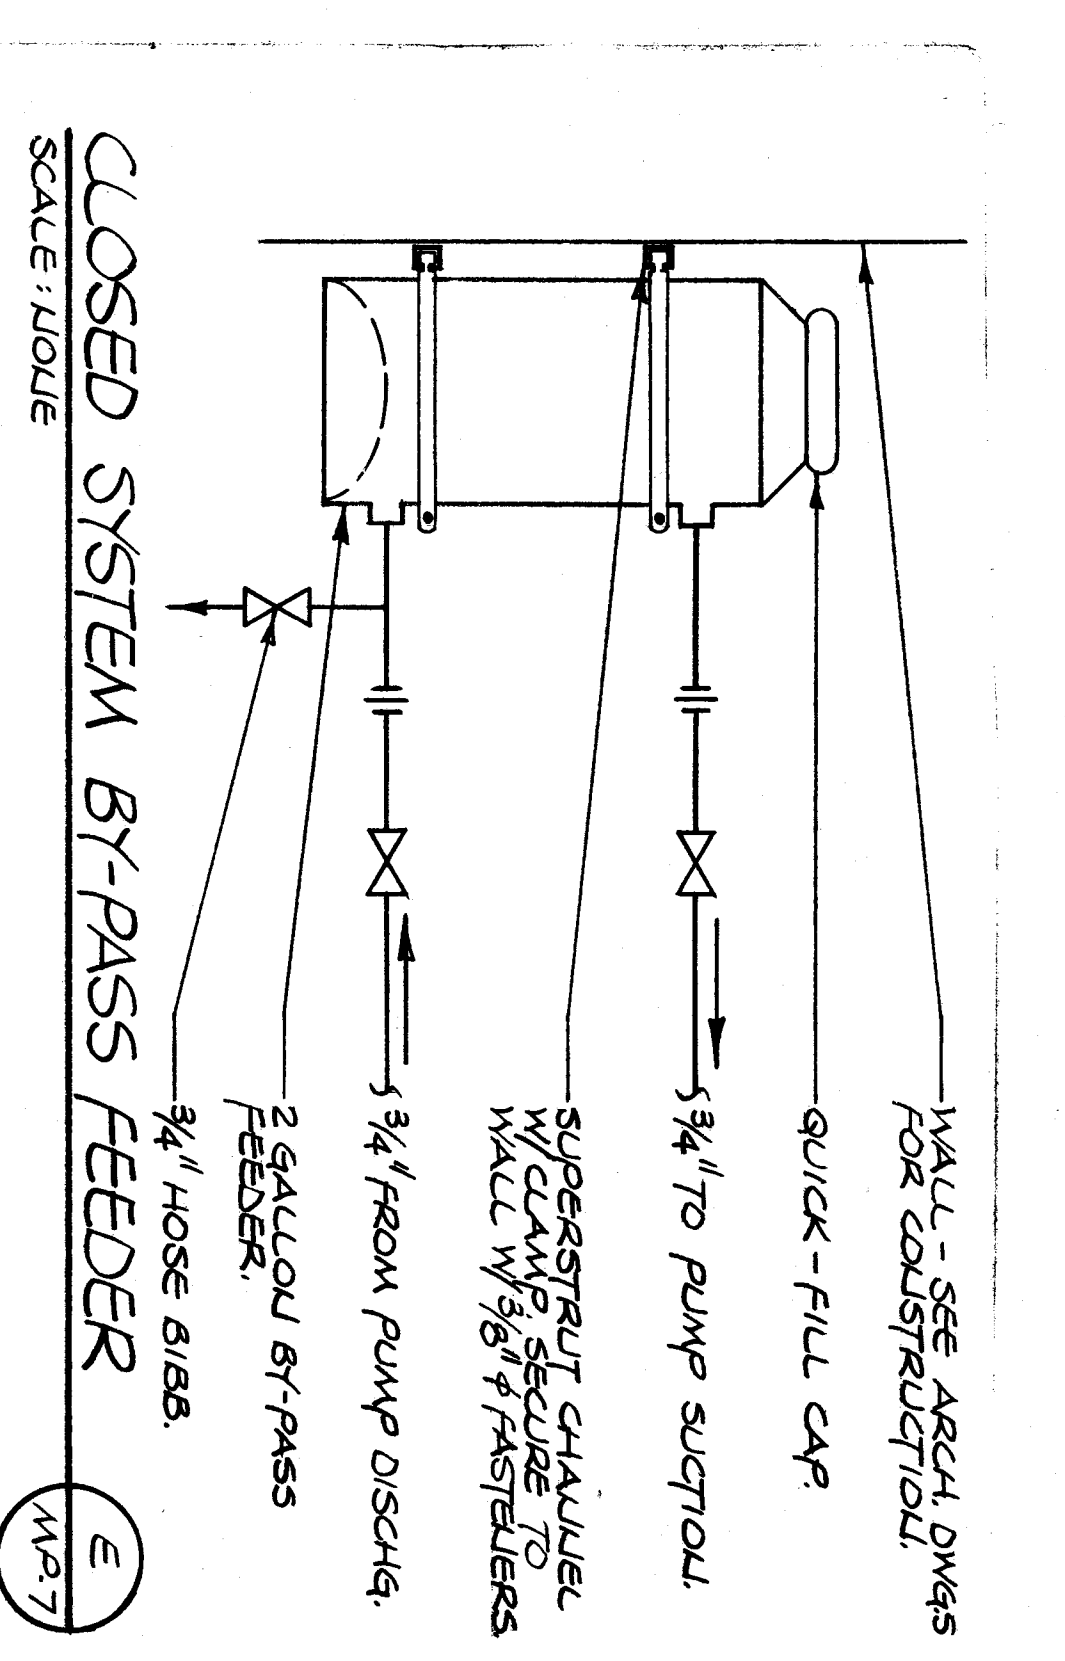 WALL - SEE ARCH. DWGS
FOR CONSTRUCTION.
QUICK-FILL CAP.
3/4" TO PUMP SUCTION.
SUPERSTRUT CHANNEL
W/ CLAMP, SECURE TO
WALL W/ 3/8" φ FASTENERS
3/4" FROM PUMP DISCHG.
2 GALLON BY-PASS
FEEDER.
3/4" HOSE BIBB.
CLOSED SYSTEM BY-PASS FEEDER
SCALE: NONE
E
MP.7